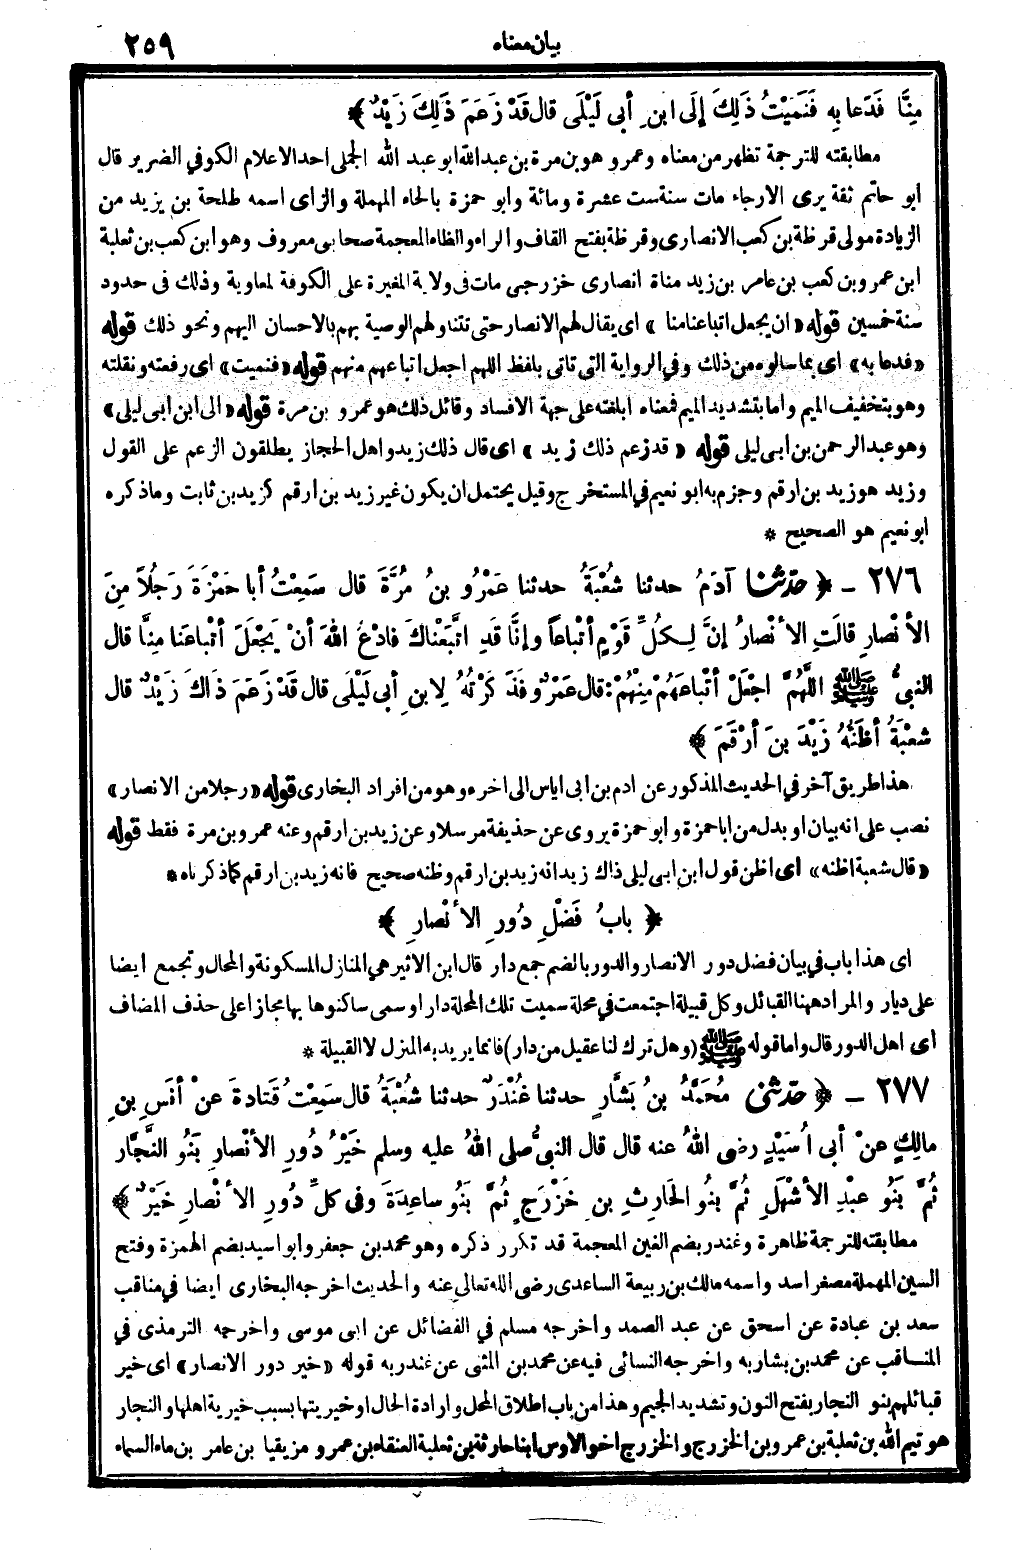 بيان معناه ٢٥٩
مِنَّا فَدَعا بِهِ فَنَمَيْتُ ذَلِكَ إِلَى ابنِ أبى لَيْلَى قال قَدْ زَعَمَ ذَلِكَ زَيْدٌ ﴾
مطابقته للترجمة تظهر من معناه وعمرو هو بن مرة بن عبد الله ابو عبد الله الجملى احد الاعلام الكوفي الضرير قال
ابو حاتم ثقة يرى الارجاء مات سنة ست عشرة ومائة وابو حمزة بالحاء المهملة والزاى اسمه طلحة بن يزيد من
الزيادة مولى قرظة بن كعب الانصارى وقرظة بفتح القاف والراء والظاء المعجمة صحابى معروف وهو ابن كعب بن ثعلبة
ابن عمرو بن كعب بن عامر بن زيد مناة انصارى خزرجى مات فى ولاية المغيرة على الكوفة لمعاوية وذلك فى حدود
سنة خمسين قوله «ان يجعل اتباعنا منا» اى يقال لهم الانصار حتى تتناولهم الوصية بهم بالاحسان اليهم ونحو ذلك قوله
«فدعا به» اى بما سالوه من ذلك وفي الرواية التى تاتى بلفظ اللهم اجعل اتباعهم منهم قوله «فنميت» اى رفعته ونقلته
وهو بتخفيف الميم واما بتشديد الميم فمعناه ابلغته على جهة الافساد وقائل ذلك هو عمرو بن مرة قوله «الى ابن ابى ليلى»
وهو عبد الرحمن بن ابى ليلى قوله «قد زعم ذلك زيد» اى قال ذلك زيد واهل الحجاز يطلقون الزعم على القول
وزيد هو زيد بن ارقم وجزم به ابو نعيم في المستخرج وقيل يحتمل ان يكون غير زيد بن ارقم كزيد بن ثابت وما ذكره
ابو نعيم هو الصحيح *
٢٧٦ – ﴿ حَدَّثَنَا آدَمُ حدثنا شُعْبَةُ حدثنا عَمْرُو بنُ مُرَّةَ قال سَمِعْتُ أبا حَمْزَةَ رَجُلاً مِنَ
الأنْصارِ قالَتِ الأنْصارُ إنَّ لِكُلِّ قَوْمٍ أتْباعاً وإنَّا قَدِ اتَّبَعْناكَ فادْعُ اللهَ أنْ يَجْعَلَ أتْباعَنا مِنَّا قال
النبىُّ ﷺ اللَّهُمَّ اجْعَلْ أتْباعَهُمْ مِنْهُمْ: قال عَمْرٌو فَذَ كَرْتُهُ لِابنِ أبى لَيْلَى قال قَدْ زَعَمَ ذَاكَ زَيْدٌ قال
شُعْبَةُ أظُنُّهُ زَيْدَ بنَ أرْقَمَ ﴾
هذا طريق آخر في الحديث المذكور عن ادم بن ابى اياس الى اخره وهو من افراد البخارى قوله «رجلا من الانصار»
نصب على انه بيان او بدل من ابا حمزة وابو حمزة يروى عن حذيفة مرسلا وعن زيد بن ارقم وعنه عمرو بن مرة فقط قوله
«قال شعبة اظنه» اى اظن قول ابن ابى ليلى ذاك زيد انه زيد بن ارقم وظنه صحيح فانه زيد بن ارقم كما ذكرناه *
﴿ بابُ فَضْلِ دُورِ الأنْصارِ ﴾
اى هذا باب في بيان فضل دور الانصار والدور بالضم جمع دار قال ابن الاثير هي المنازل المسكونة والمحال وتجمع ايضا
على ديار والمراد ههنا القبائل وكل قبيلة اجتمعت في محلة سميت تلك المحلة دار او سمى ساكنوها بها مجازا على حذف المضاف
اى اهل الدور قال واما قوله ﷺ (وهل ترك لنا عقيل من دار) فانما يريد به المنزل لا القبيلة *
٢٧٧ – ﴿ حَدَّثَنِى مُحَمَّدُ بنُ بَشَّارٍ حدثنا غُنْدَرٌ حدثنا شُعْبَةُ قال سَمِعْتُ قَتادةَ عنْ أنَسِ بنِ
مالِكٍ عنْ أبى أُسَيْدٍ رضى اللهُ عنه قال قال النبىُّ صلى اللهُ عليه وسلم خَيْرُ دُورِ الأنْصارِ بَنُو النَّجَّارِ
ثُمَّ بَنُو عبْدِ الأشْهَلِ ثُمَّ بنُو الحَارِثِ بنِ خَزْرَجٍ ثُمَّ بَنُو ساعِدَةَ وفى كلِّ دُورِ الأنْصارِ خَيْرٌ ﴾
مطابقته للترجمة ظاهرة وغندر بضم الغين المعجمة قد تكرر ذكره وهو محمد بن جعفر وابو اسيد بضم الهمزة وفتح
السين المهملة مصغر اسد واسمه مالك بن ربيعة الساعدى رضى الله تعالى عنه والحديث اخرجه البخارى ايضا في مناقب
سعد بن عبادة عن اسحق عن عبد الصمد واخرجه مسلم في الفضائل عن ابى موسى واخرجه الترمذى في
المناقب عن محمد بن بشار به واخرجه النسائى فيه عن محمد بن المثنى عن غندر به قوله «خير دور الانصار» اى خير
قبائلهم بنو النجار بفتح النون وتشديد الجيم وهذا من باب اطلاق المحل وارادة الحال او خيريتها بسبب خيرية اهلها والنجار
هو تيم الله بن ثعلبة بن عمرو بن الخزرج والخزرج اخو الاوس ابنا حارثة بن ثعلبة العنقاء بن عمرو مزيقيا بن عامر بن ماء السماء